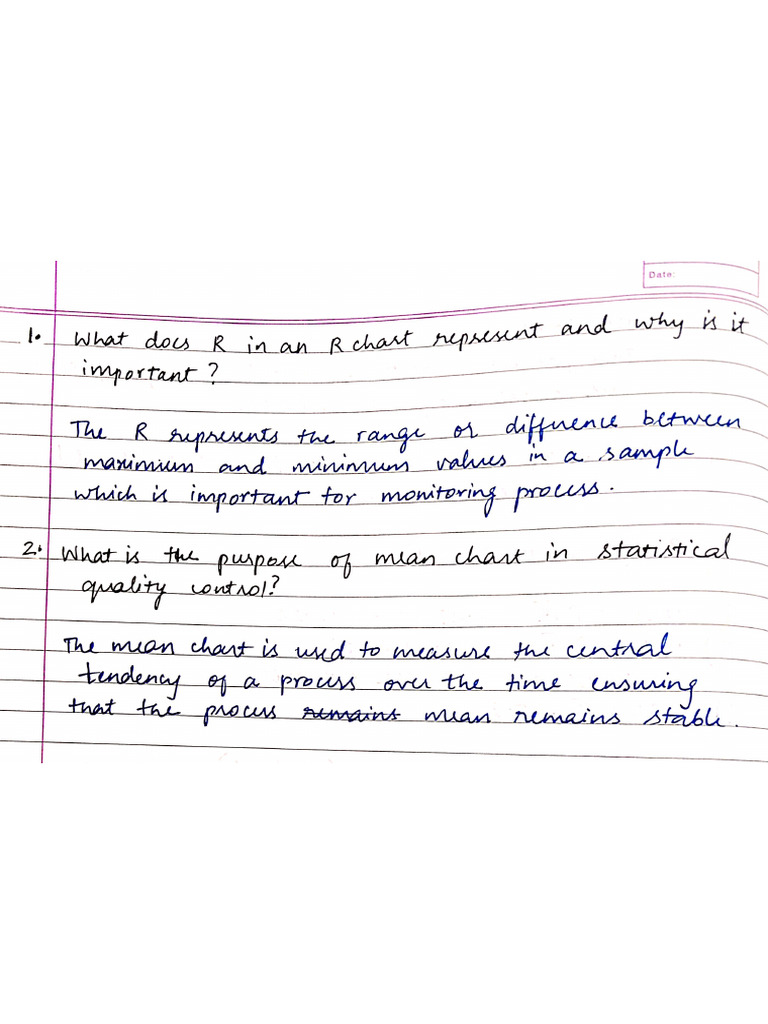 Date:
1. What does R in an R chart represent and why is it
important?
The R represents the range or difference between
maximum and minimum values in a sample
which is important for monitoring process.
2. What is the purpose of mean chart in statistical
quality control?
The mean chart is used to measure the central
tendency of a process over the time ensuring
that the process remains mean remains stable.